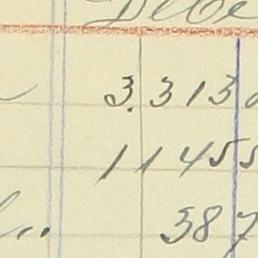 Debe
3.313
11455
387